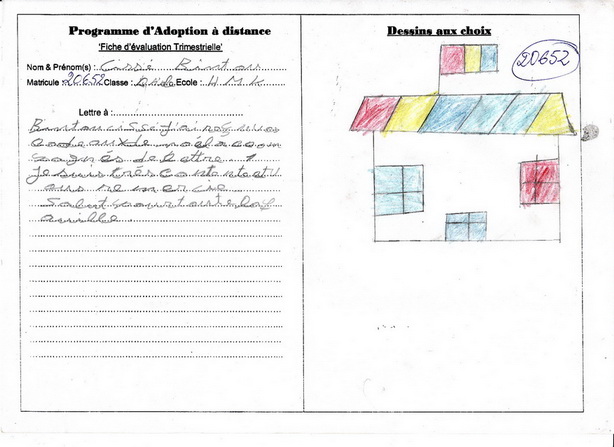 Programme d'Adoption à distance
'Fiche d'évaluation Trimestrielle'
Nom & Prénom(s) : Cissé Bintou
Matricule : 20652 Classe : Ecole : H M K
Lettre à :
Bintou cissé j'ai reçu vos
cadeaux de noel accom
pagnés de lettre
je suis très contente et
vous remercie
Salut pour toute la f
amille
Dessins aux choix
20652